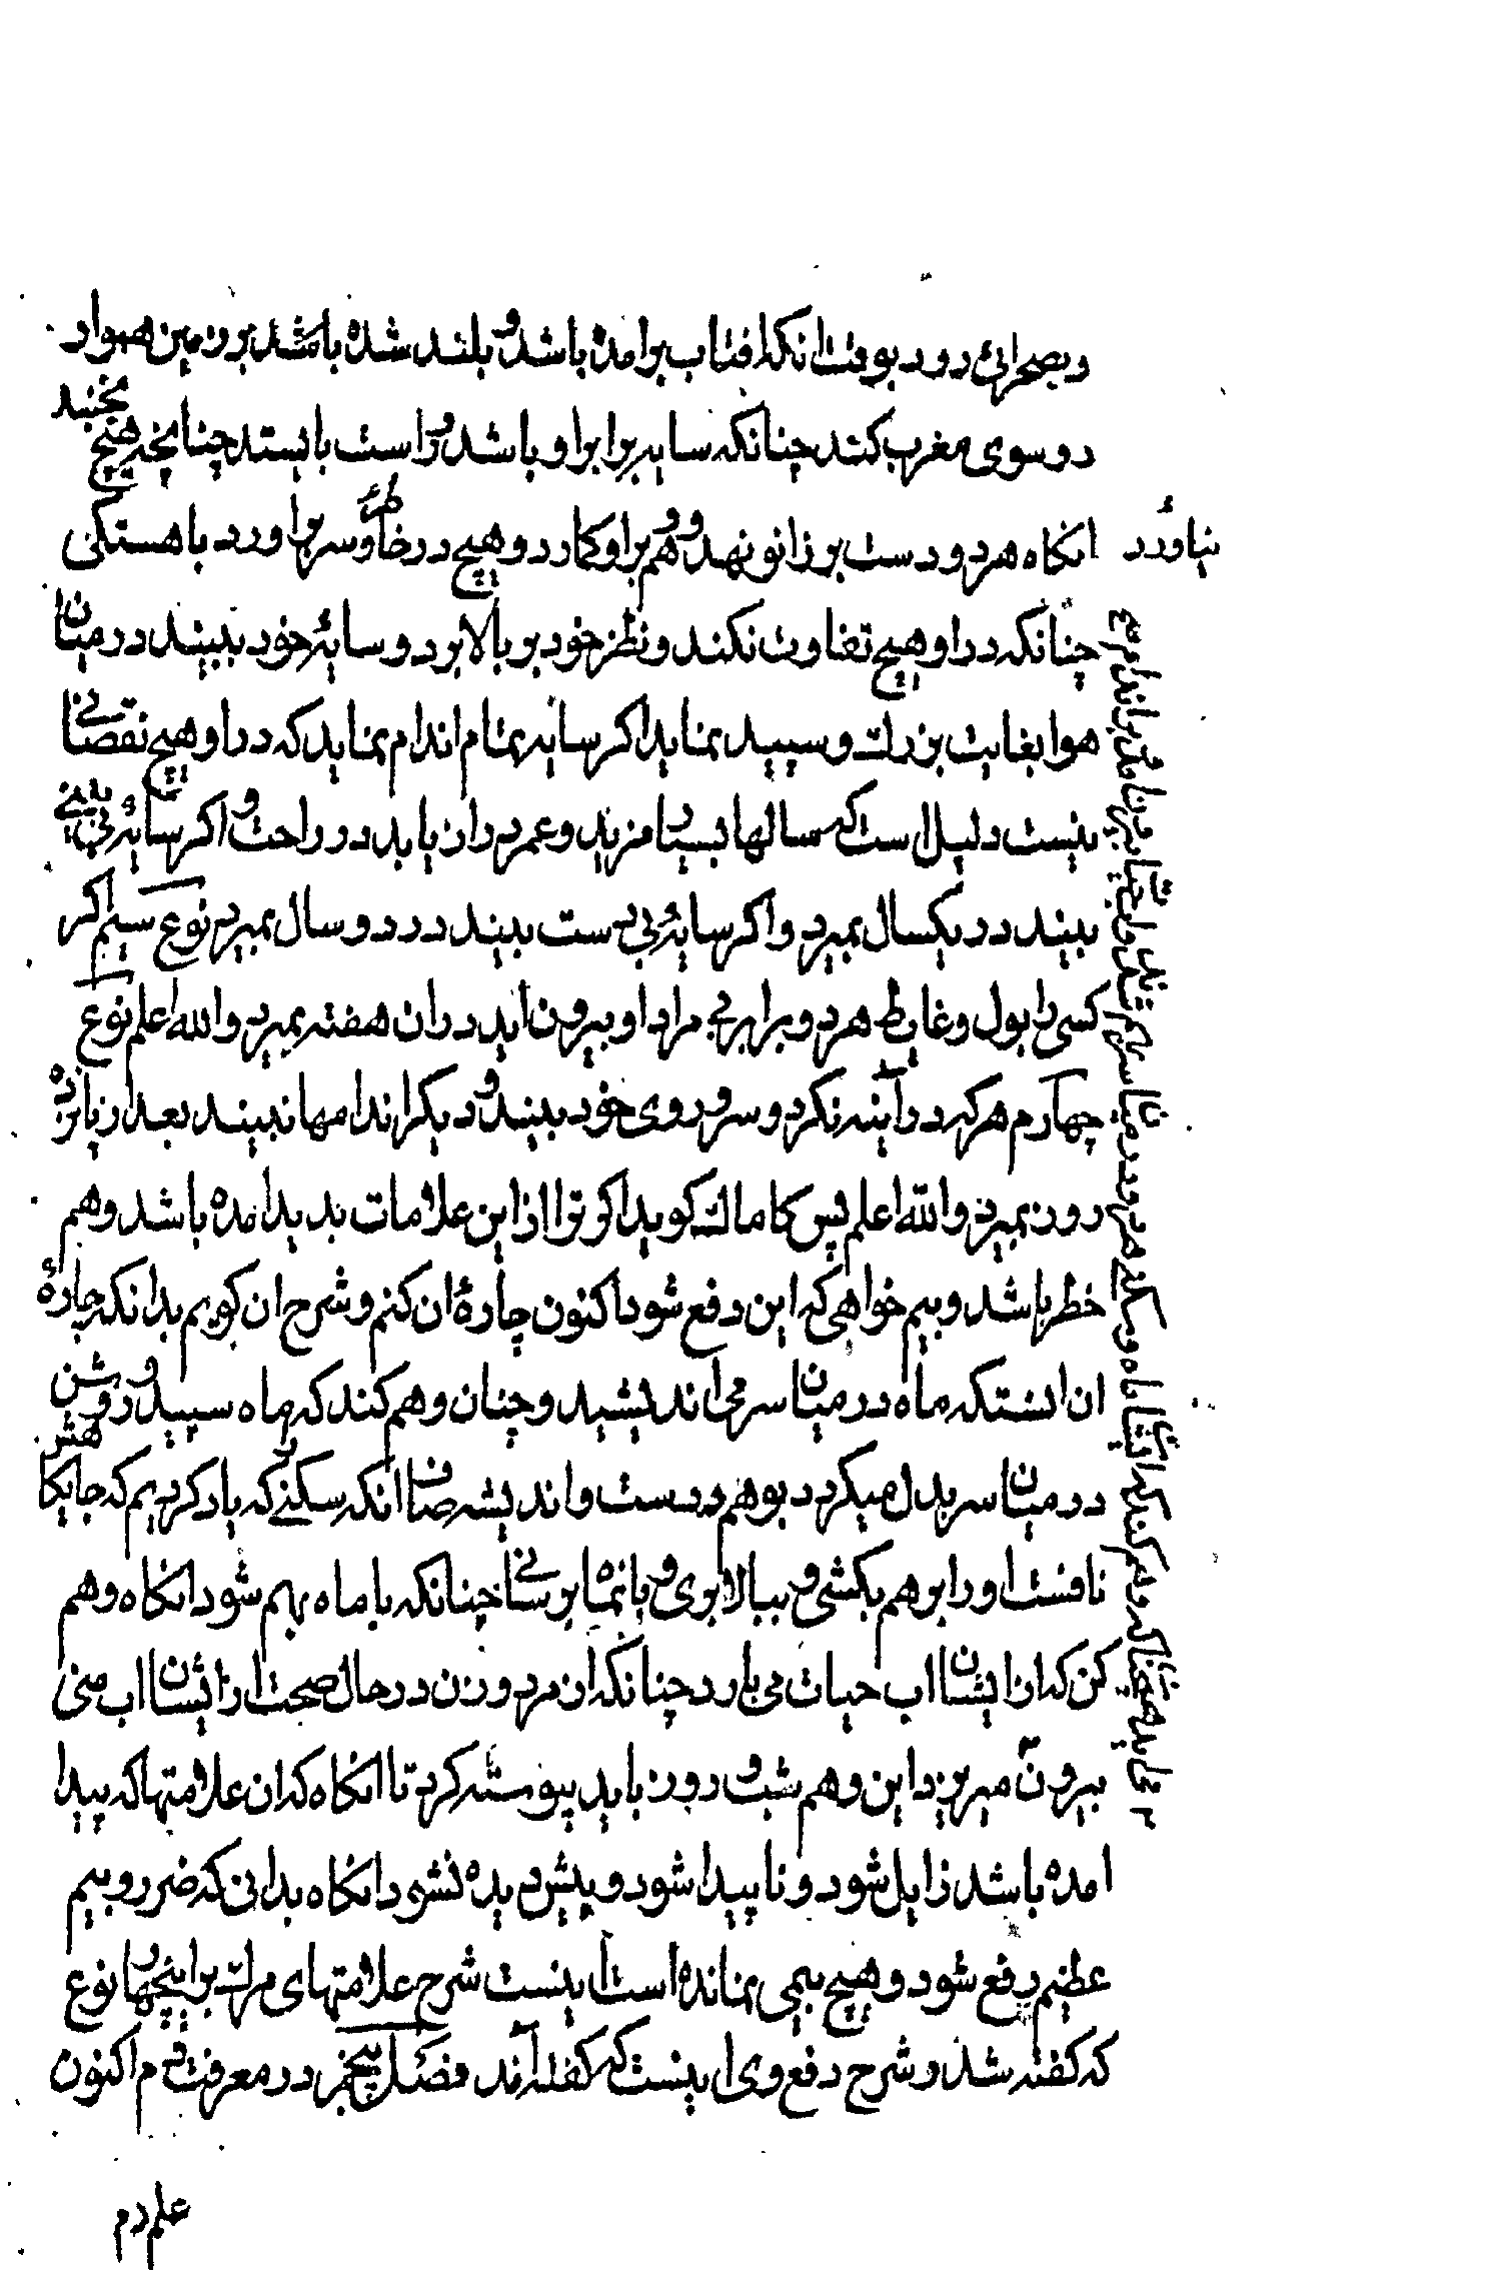 وبصحرائی رود بوقت انکه افتاب برامده باشد و بلند شده باشد بر زمین هموار
رو سوی مغرب کند چنانکه سایه برابر او باشد و راست بایستد چنانچه هیچ نجنبد
انکاه هر دو دست بر زانو نهد و وهم براو کمارد و هیچ در خاطر و سر برآورد باهستکی
نیاورد
چنانکه در او هیچ تفاوت نکند و نظر خود بر بالا برد و سایۀ خود ببیند در میان
هوا بغایت بزرك و سپید نماید اکر سایه بتمام اندام نماید که در او هیچ نقصانی
نیست دلیل است که سالها بسیار مزید و عمر دراز یابد در راحت و اکر سایۀ بی بینی
بیند در یکسال بمیرد و اکر سایۀ بی دست بیند در دو سال بمیرد نوع سیم اکر
کسی را بول و غایط هر دو برابر بی مراد او بیرون اید در ان هفته بمیرد والله اعلم نوع
چهارم هر که در آینه نکرد و سر و روی خود بیند و دیکر اندامها نبیند بعد از پانزده
روز بمیرد والله اعلم پس کاماك کوید اکر ترا از این علامات بدید امده باشد وهم
خطر باشد و بیم خواهی که این دفع شود اکنون چارۀ ان کنم و شرح ان کویم بدانکه چارۀ
ان انستکه ماه در میان سر می اندیشید و چنان وهم کند که ماه سپید و روشن
در میان سر بدل میکردد بوهم درست و اندیشه صاف انکه سکنی که یاد کردیم که جایکاهش
نافست او را بوهم بکشی و ببالا بری و بانماه برسانی چنانکه با ماه بهم شود انکاه وهم
کن که از ایشان اب حیات می بارد چنانکه از مرد و زن در حال صحبت از ایشان اب منی
بیرون میریزد این وهم شب و روز باید پیوسته کرد تا انکاه که ان علامتها که پیدا
امده باشد زایل شود و ناپیدا شود و پیش دیده نشود انکاه بدانی که ضرر و بیم
عظیم دفع شود و هیچ بیمی نمانده است اینست شرح علامتهای مرك براینچهار نوع
که کفته شد و شرح دفع وی اینست که کفته آمد فصل پنجم در معرفت دم اکنون
علم دم